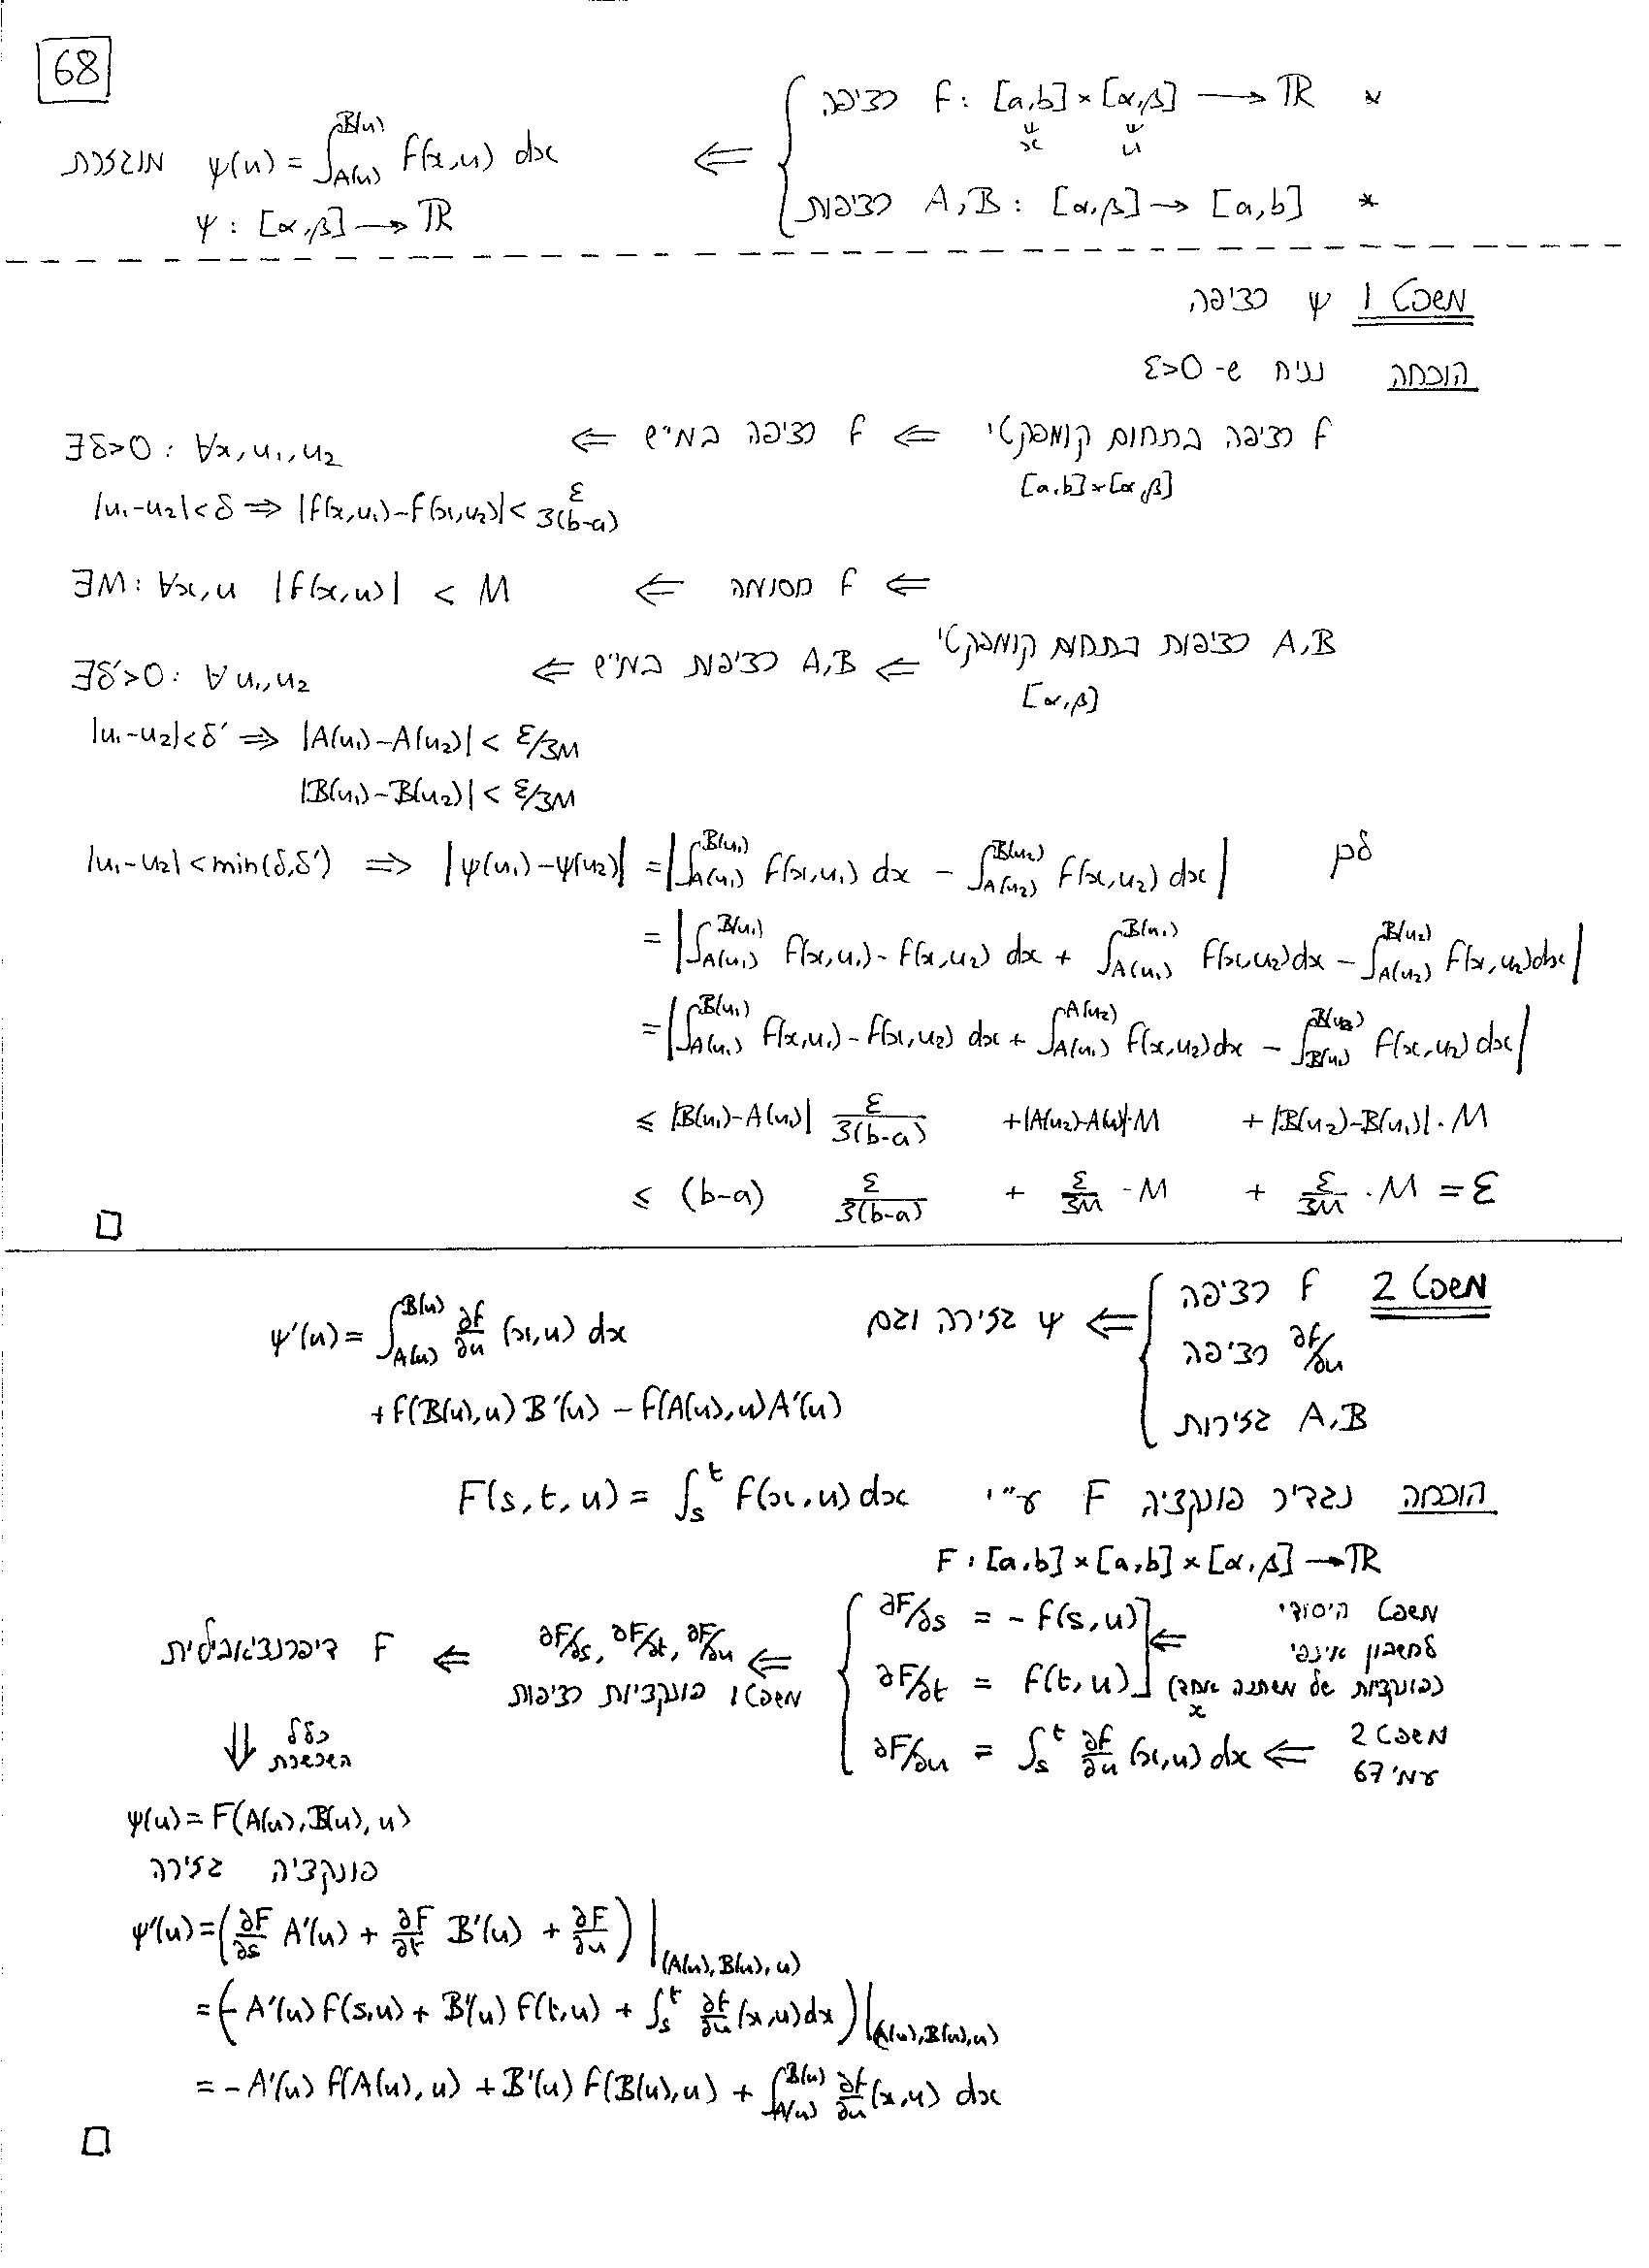 68
* רציפה f: [a,b] × [α,β] ⟶ ℝ
x u
* רציפות A,B: [α,β] → [a,b]
⇐ ψ(u) = ∫_{A(u)}^{B(u)} f(x,u) dx מוגדרת
ψ: [α,β] ⟶ ℝ
משפט 1 ψ רציפה
הוכחה נניח ש- ε>0
f רציפה בתחום קומפקטי ⇐ f רציפה במ"ש ⇐ ∃δ>0: ∀x,u₁,u₂
[a,b]×[α,β]
|u₁-u₂|<δ ⇒ |f(x,u₁)-f(x,u₂)| < ε/3(b-a)
⇐ f חסומה ⇐ ∃M: ∀x,u |f(x,u)| < M
A,B רציפות בתחום קומפקטי ⇐ A,B רציפות במ"ש ⇐ ∃δ'>0: ∀u₁,u₂
[α,β]
|u₁-u₂|<δ' ⇒ |A(u₁)-A(u₂)| < ε/3M
|B(u₁)-B(u₂)| < ε/3M
לכן |u₁-u₂|<min(δ,δ') ⇒ |ψ(u₁)-ψ(u₂)| = |∫_{A(u₁)}^{B(u₁)} f(x,u₁) dx - ∫_{A(u₂)}^{B(u₂)} f(x,u₂) dx|
= |∫_{A(u₁)}^{B(u₁)} f(x,u₁)-f(x,u₂) dx + ∫_{A(u₁)}^{B(u₁)} f(x,u₂)dx - ∫_{A(u₂)}^{B(u₂)} f(x,u₂)dx|
= |∫_{A(u₁)}^{B(u₁)} f(x,u₁)-f(x,u₂) dx + ∫_{A(u₁)}^{A(u₂)} f(x,u₂)dx - ∫_{B(u₁)}^{B(u₂)} f(x,u₂) dx|
≤ |B(u₁)-A(u₁)| ε/3(b-a) + |A(u₂)-A(u₁)|·M + |B(u₂)-B(u₁)|·M
≤ (b-a) ε/3(b-a) + ε/3M · M + ε/3M · M = ε
□
משפט 2 f רציפה
∂f/∂u רציפה
A,B גזירות
⇐ ψ גזירה וגם ψ'(u) = ∫_{A(u)}^{B(u)} ∂f/∂u (x,u) dx
+ f(B(u),u) B'(u) - f(A(u),u) A'(u)
הוכחה נגדיר פונקציה F ע"י F(s,t,u) = ∫_s^t f(x,u) dx
F: [a,b] × [a,b] × [α,β] → ℝ
משפט היסודי
לחשבון אינפי
(פונקציות של משתנה אחד)
x
⇐ ∂F/∂s = -f(s,u)
∂F/∂t = f(t,u)
משפט 2
עמ' 67
⇐ ∂F/∂u = ∫_s^t ∂f/∂u (x,u) dx
⇐ ∂F/∂s, ∂F/∂t, ∂F/∂u
משפט 1 פונקציות רציפות
⇐ F דיפרנציאבילית
⇓ כלל
השרשרת
ψ(u) = F(A(u),B(u),u)
פונקציה גזירה
ψ'(u) = (∂F/∂s A'(u) + ∂F/∂t B'(u) + ∂F/∂u)|_{(A(u),B(u),u)}
= (-A'(u) f(s,u) + B'(u) f(t,u) + ∫_s^t ∂f/∂u (x,u) dx)|_{(A(u),B(u),u)}
= -A'(u) f(A(u),u) + B'(u) f(B(u),u) + ∫_{A(u)}^{B(u)} ∂f/∂u (x,u) dx
□